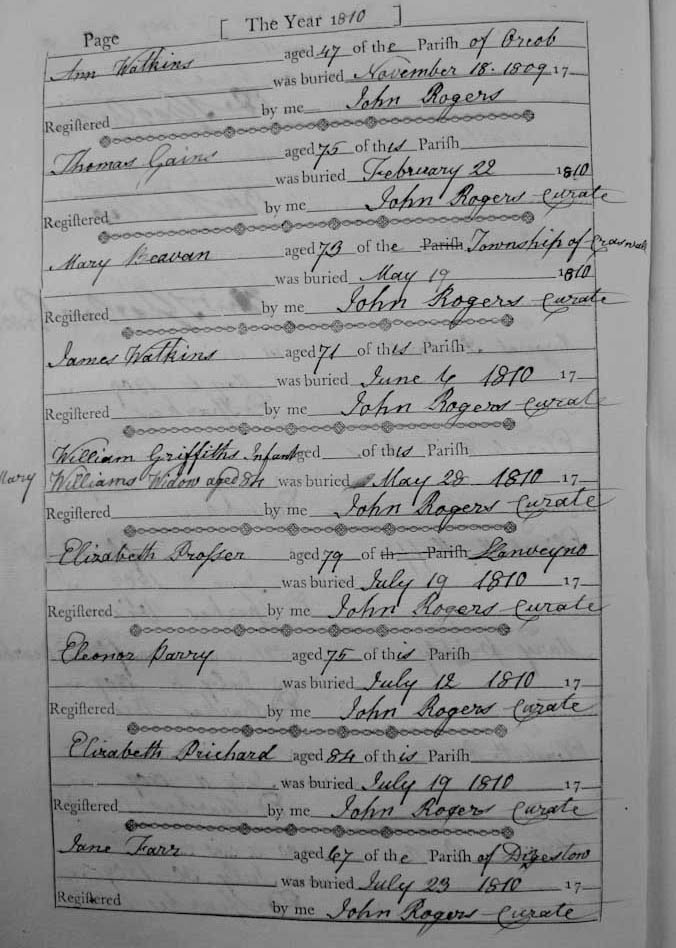 Page [ The Year 1810 ]
Ann Watkins aged 47 of the Pariſh of Orcob
was buried November 18. 1809 17
Regiſtered by me John Rogers
Thomas Gains aged 75 of this Pariſh
was buried February 22 1810
Regiſtered by me John Rogers Curate
Mary Beavan aged 73 of the Pariſh Township of Craswall
was buried May 19 1810
Regiſtered by me John Rogers Curate
James Watkins aged 71 of this Pariſh
was buried June 6 1810 17
Regiſtered by me John Rogers Curate
William Griffiths Infant aged of this Pariſh
Mary Williams Widow aged 84 was buried May 28 1810 17
Regiſtered by me John Rogers Curate
Elizabeth Proſser aged 79 of th Pariſh Llanveyno
was buried July 19 1810 17
Regiſtered by me John Rogers Curate
Eleonor Parry aged 75 of this Pariſh
was buried July 12 1810 17
Regiſtered by me John Rogers Curate
Elizabeth Prichard aged 84 of this Pariſh
was buried July 19 1810 17
Regiſtered by me John Rogers Curate
Jane Farr aged 67 of the Pariſh of Digestow
was buried July 23 1810 17
Regiſtered by me John Rogers Curate